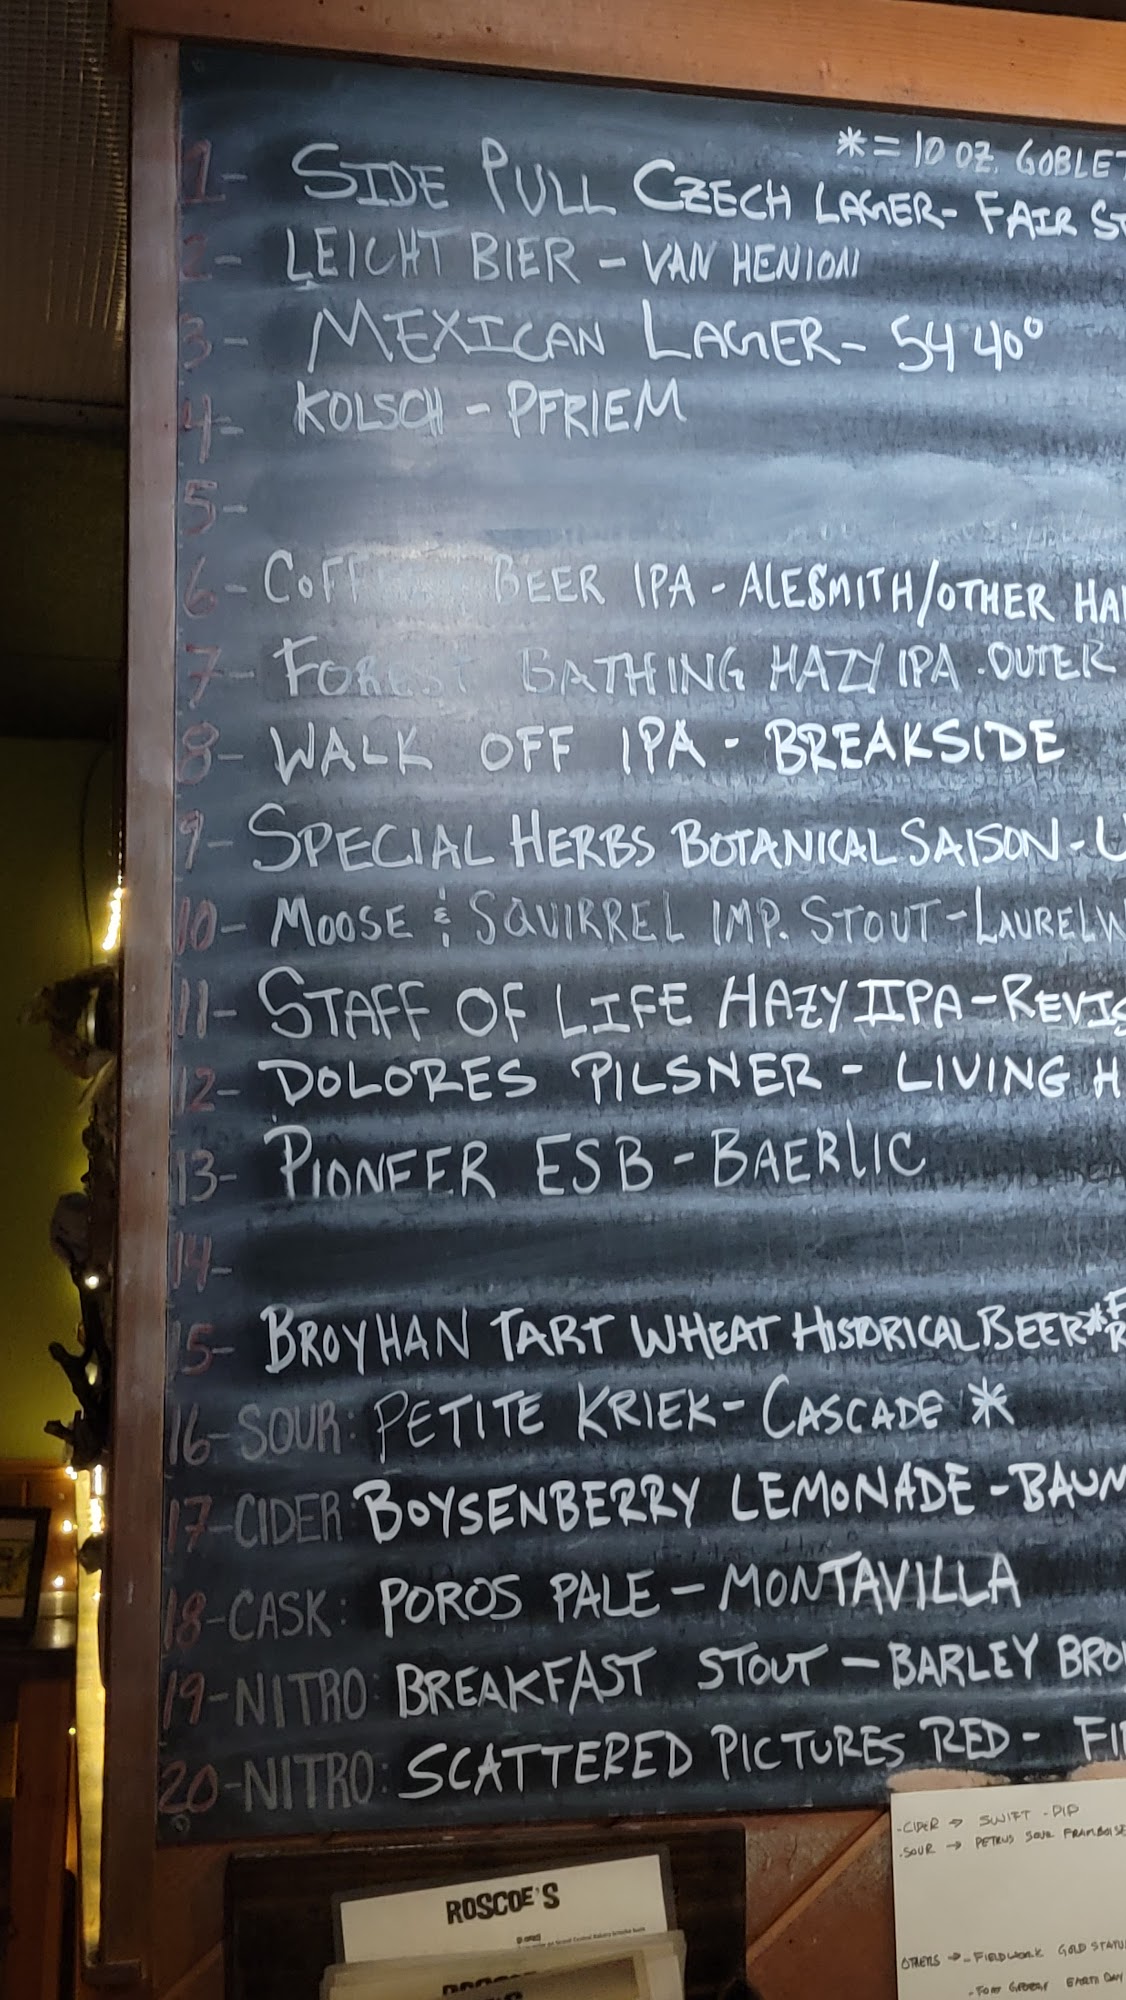 * = 10 OZ. GOBLET
1- SIDE PULL CZECH LAGER- FAIR ST
2- LEICHT BIER - VAN HENION
3- MEXICAN LAGER- 54 40°
4- KOLSCH - PFRIEM
5-
6- BEER IPA - ALESMITH/OTHER HA
7- FOREST BATHING HAZY IPA - OUTER
8- WALK OFF IPA - BREAKSIDE
9- SPECIAL HERBS BOTANICAL SAISON - U
10- MOOSE & SQUIRREL IMP. STOUT - LAURELW
11- STAFF OF LIFE HAZY IIPA - REVIS
12- DOLORES PILSNER - LIVING H
13- PIONEER ESB - BAERLIC
14-
15- BROYHAN TART WHEAT HISTORICAL BEER*
16- SOUR: PETITE KRIEK - CASCADE *
17- CIDER: BOYSENBERRY LEMONADE - BAUM
18- CASK: POROS PALE - MONTAVILLA
19- NITRO: BREAKFAST STOUT - BARLEY BRO
20- NITRO: SCATTERED PICTURES RED - FI
- CIDER → SWIFT - DIP
- SOUR → PETRUS SOUR FRAMBOISE
ROSCOE'S
OTHERS → - FIELDWORK GOLD STATU
- FORT GEORGE EARTH DAY